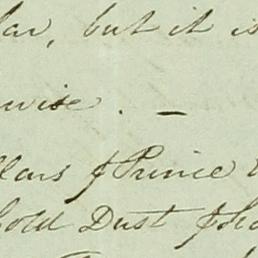 lar, but it is
wise. —
llars ⅌ Prince
Gold Dust ⅌